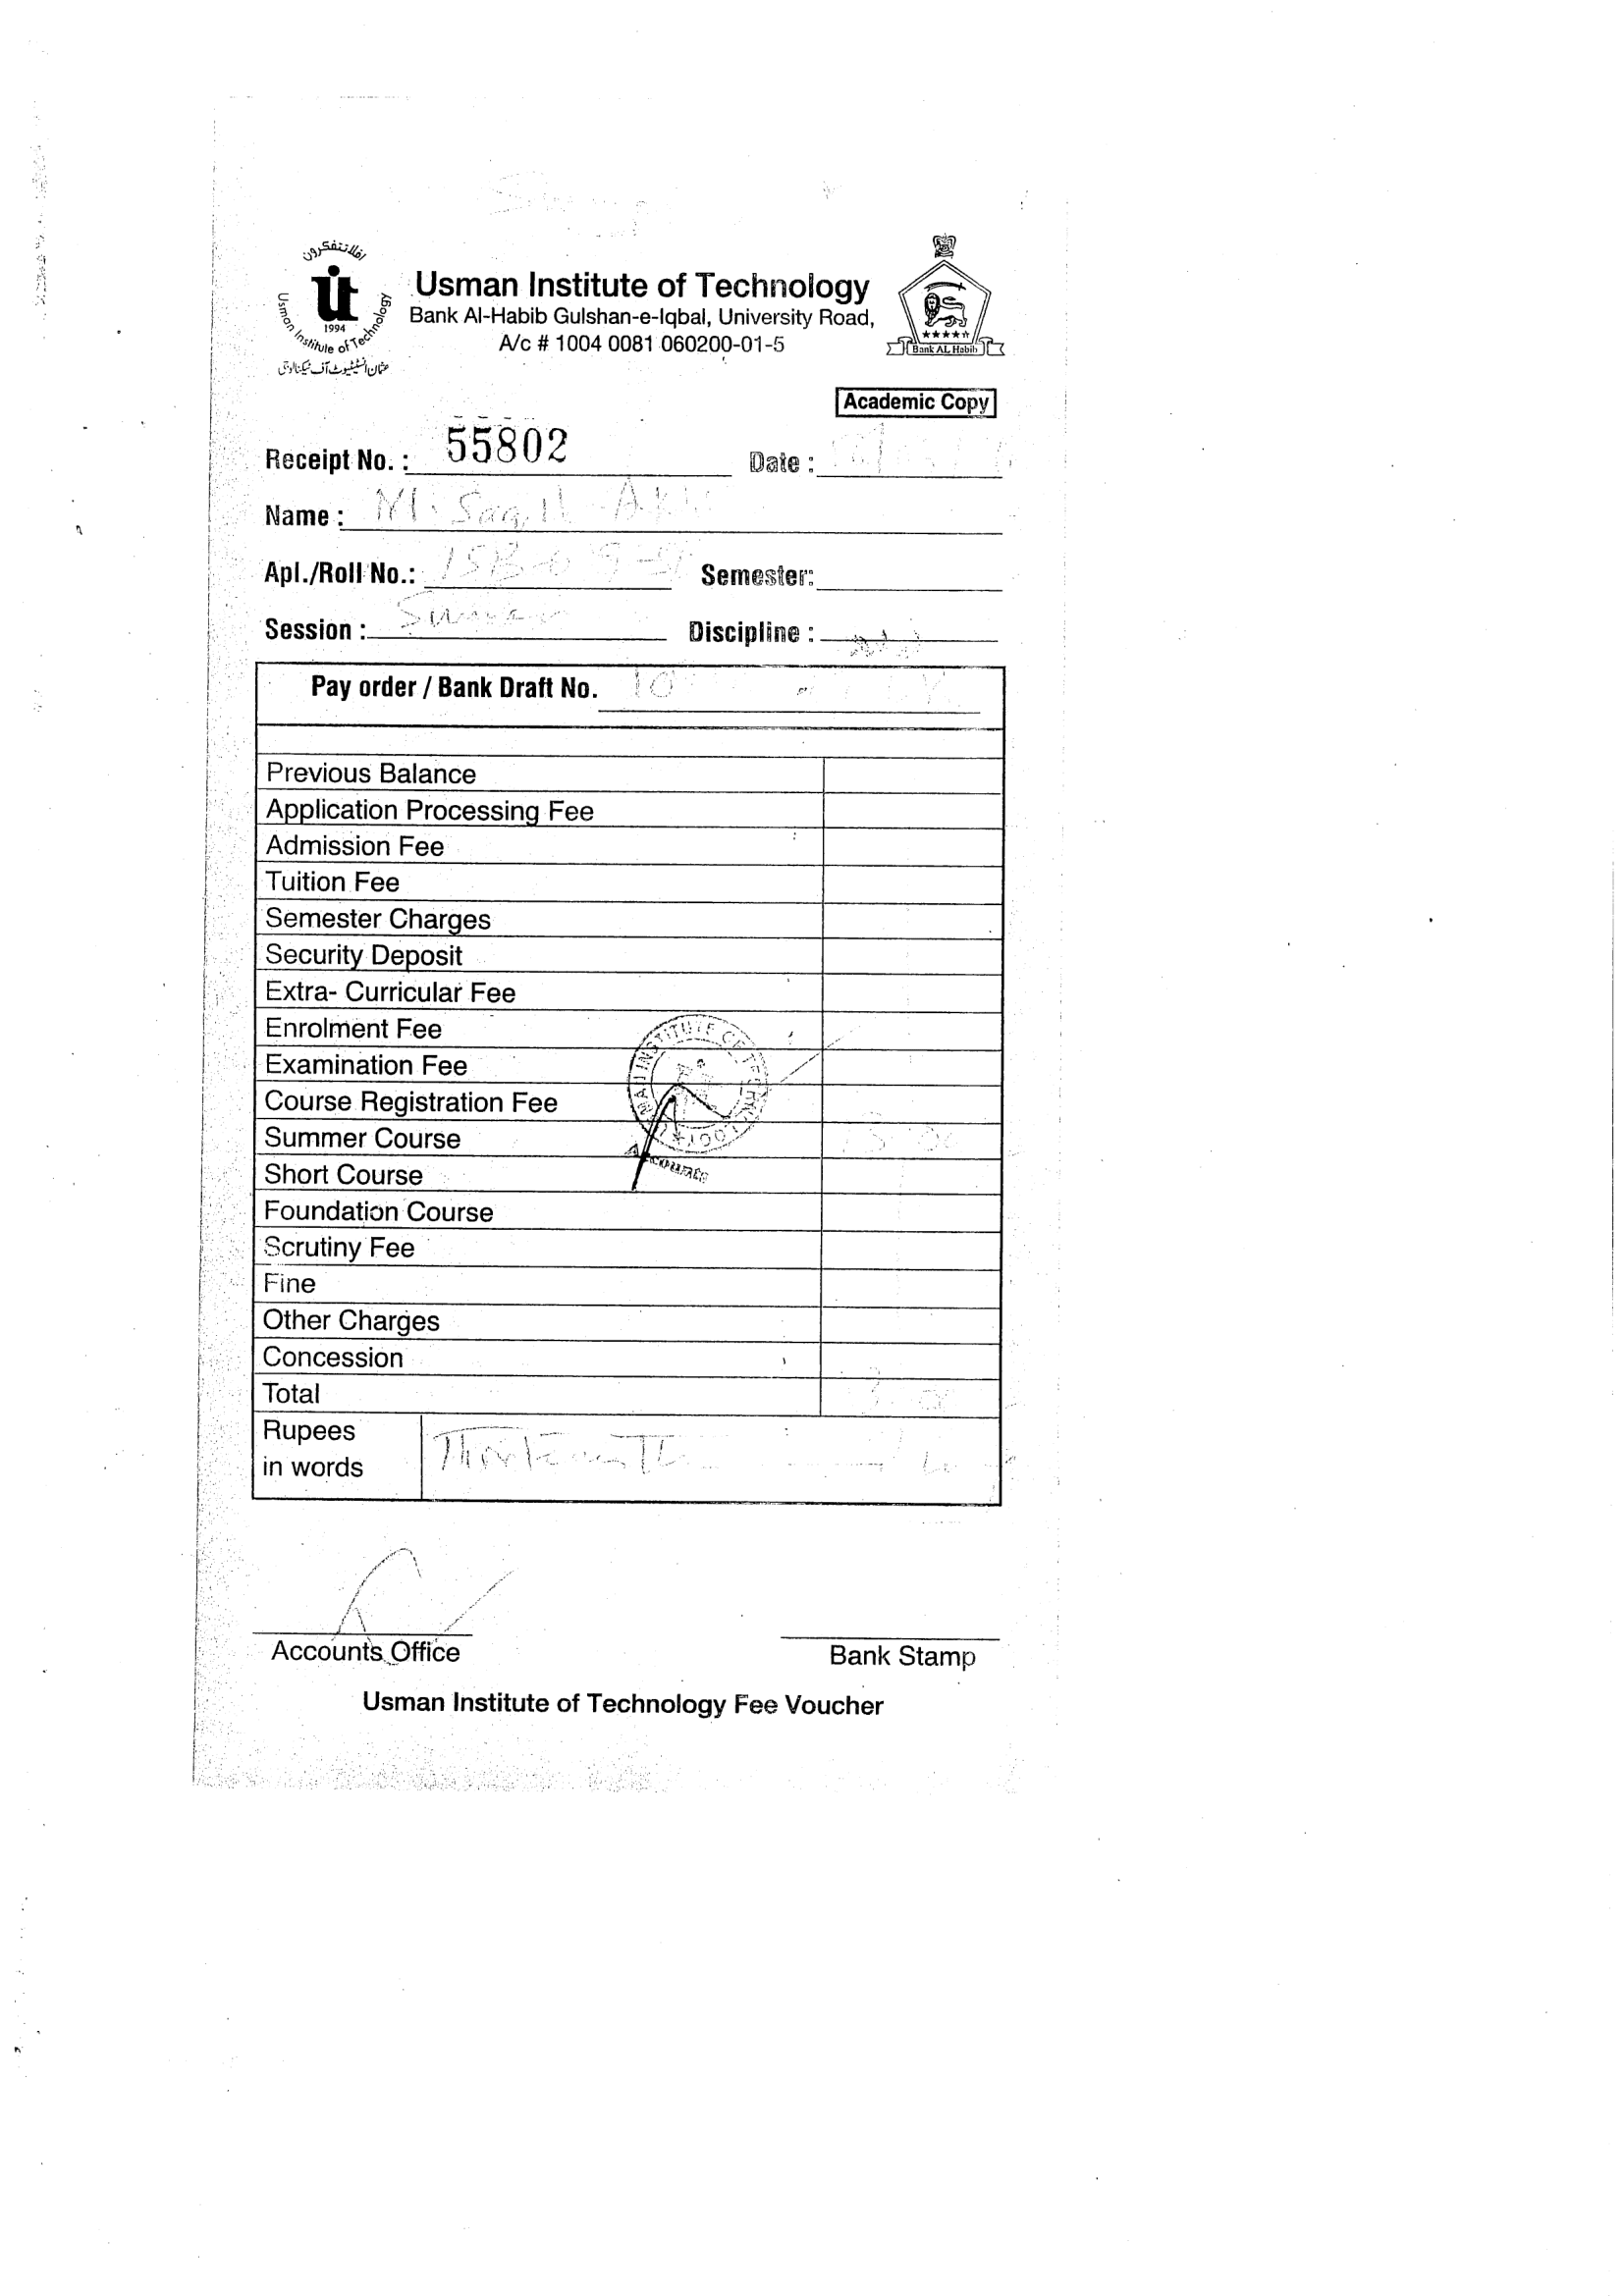 افلا تتفكرون
UIT
1994
Usman Institute of Technology
عثمان انسٹیٹیوٹ آف ٹیکنالوجی
Usman Institute of Technology
Bank Al-Habib Gulshan-e-Iqbal, University Road,
A/c # 1004 0081 060200-01-5
Bank AL Habib
Academic Copy
Receipt No. : 55802 Date :
Name : M.
Apl./Roll No.: Semester:
Session : Summer Discipline :
Pay order / Bank Draft No.
Previous Balance
Application Processing Fee
Admission Fee
Tuition Fee
Semester Charges
Security Deposit
Extra- Curricular Fee
Enrolment Fee
Examination Fee
Course Registration Fee
Summer Course
Short Course
Foundation Course
Scrutiny Fee
Fine
Other Charges
Concession
Total
Rupees
in words
INSTITUTE OF
Accounts
Accounts Office
Bank Stamp
Usman Institute of Technology Fee Voucher